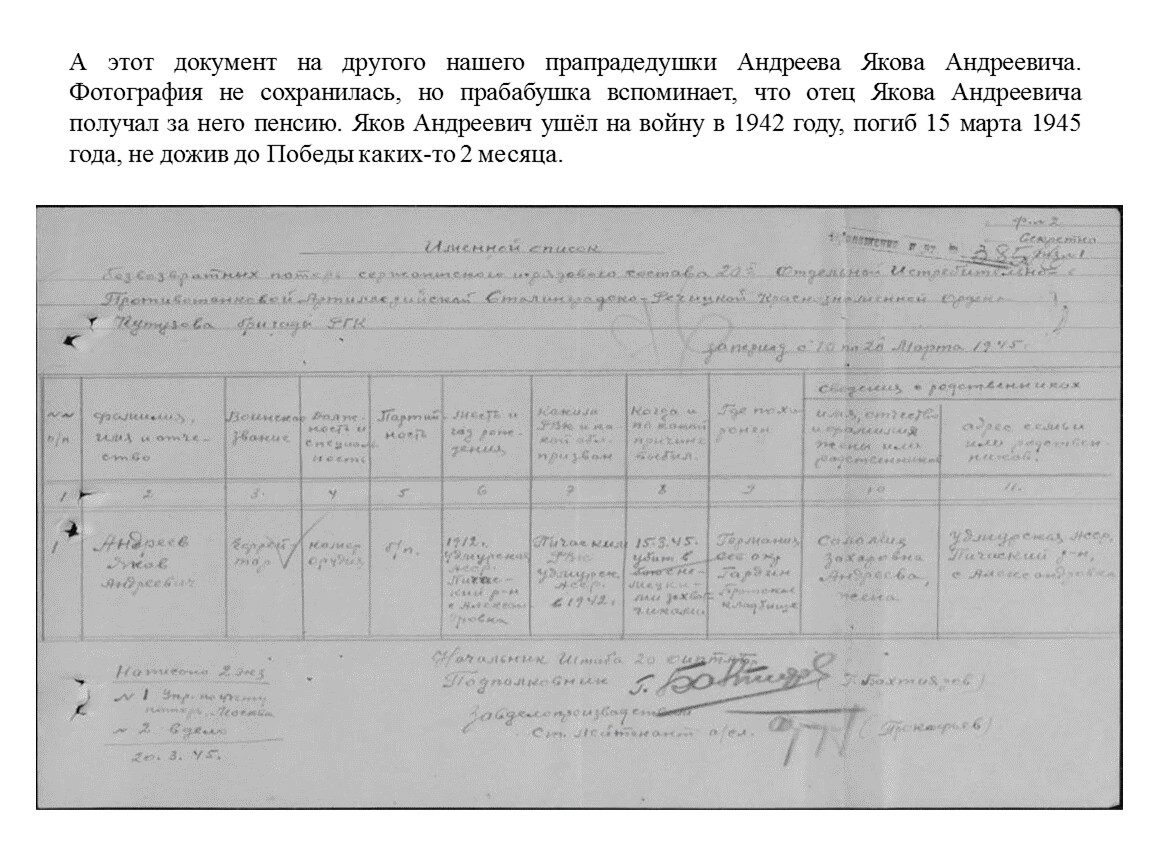 А этот документ на другого нашего прапрадедушки Андреева Якова Андреевича.
Фотография не сохранилась, но прабабушка вспоминает, что отец Якова Андреевича
получал за него пенсию. Яков Андреевич ушёл на войну в 1942 году, погиб 15 марта 1945
года, не дожив до Победы каких-то 2 месяца.
Секретно
385
Именной список
безвозвратных потерь сержантского и рядового состава 20й Отдельной Истребительно
Противотанковой Артиллерийской Сталинградско-Речицкой Краснознаменной Ордена
Кутузова бригады РГК
за период с 10 по 20 Марта 1945г
№№
п/п
фамилия,
имя и отче-
ство
Воинское
звание
Долж-
ность и
специаль-
ность
Партий-
ность
место и
год рож-
дения
Каким
РВК и ка-
кой обл.
призван
Когда и
по какой
причине
выбыл.
Где похо-
ронен
Сведения о родственниках
имя, отчество
и фамилия
жены или
родственников
адрес семьи
или родствен-
ников.
1 2 3. 4 5 6 7 8 9 10 11.
1
Андреев
Яков
Андреевич
Ефрей-
тор
номер
орудия
б/п.
1912г.
Удмурская
АССР.
Пичас-
кий р-н
с Алексан-
дровка
Пичаским
РВК
Удмурск.
АССР.
в 1942г.
15.3.45.
убит в
бою не-
мецки-
ми захва-
чиками
Германия
Гардин
кладбище
Захаровна
Андреева,
жена
Удмурская АССР,
Пичиский р-н,
с Александровка
Написано 2 экз
№ 1 Упр. по учету
потерь, Москва
№ 2 в дело
20. 3. 45.
Начальник Штаба 20
Подполковник
(Г. Бахтияров)
Завделопроизводством
Ст. Лейтенант а/сл.
(Прокофьев)